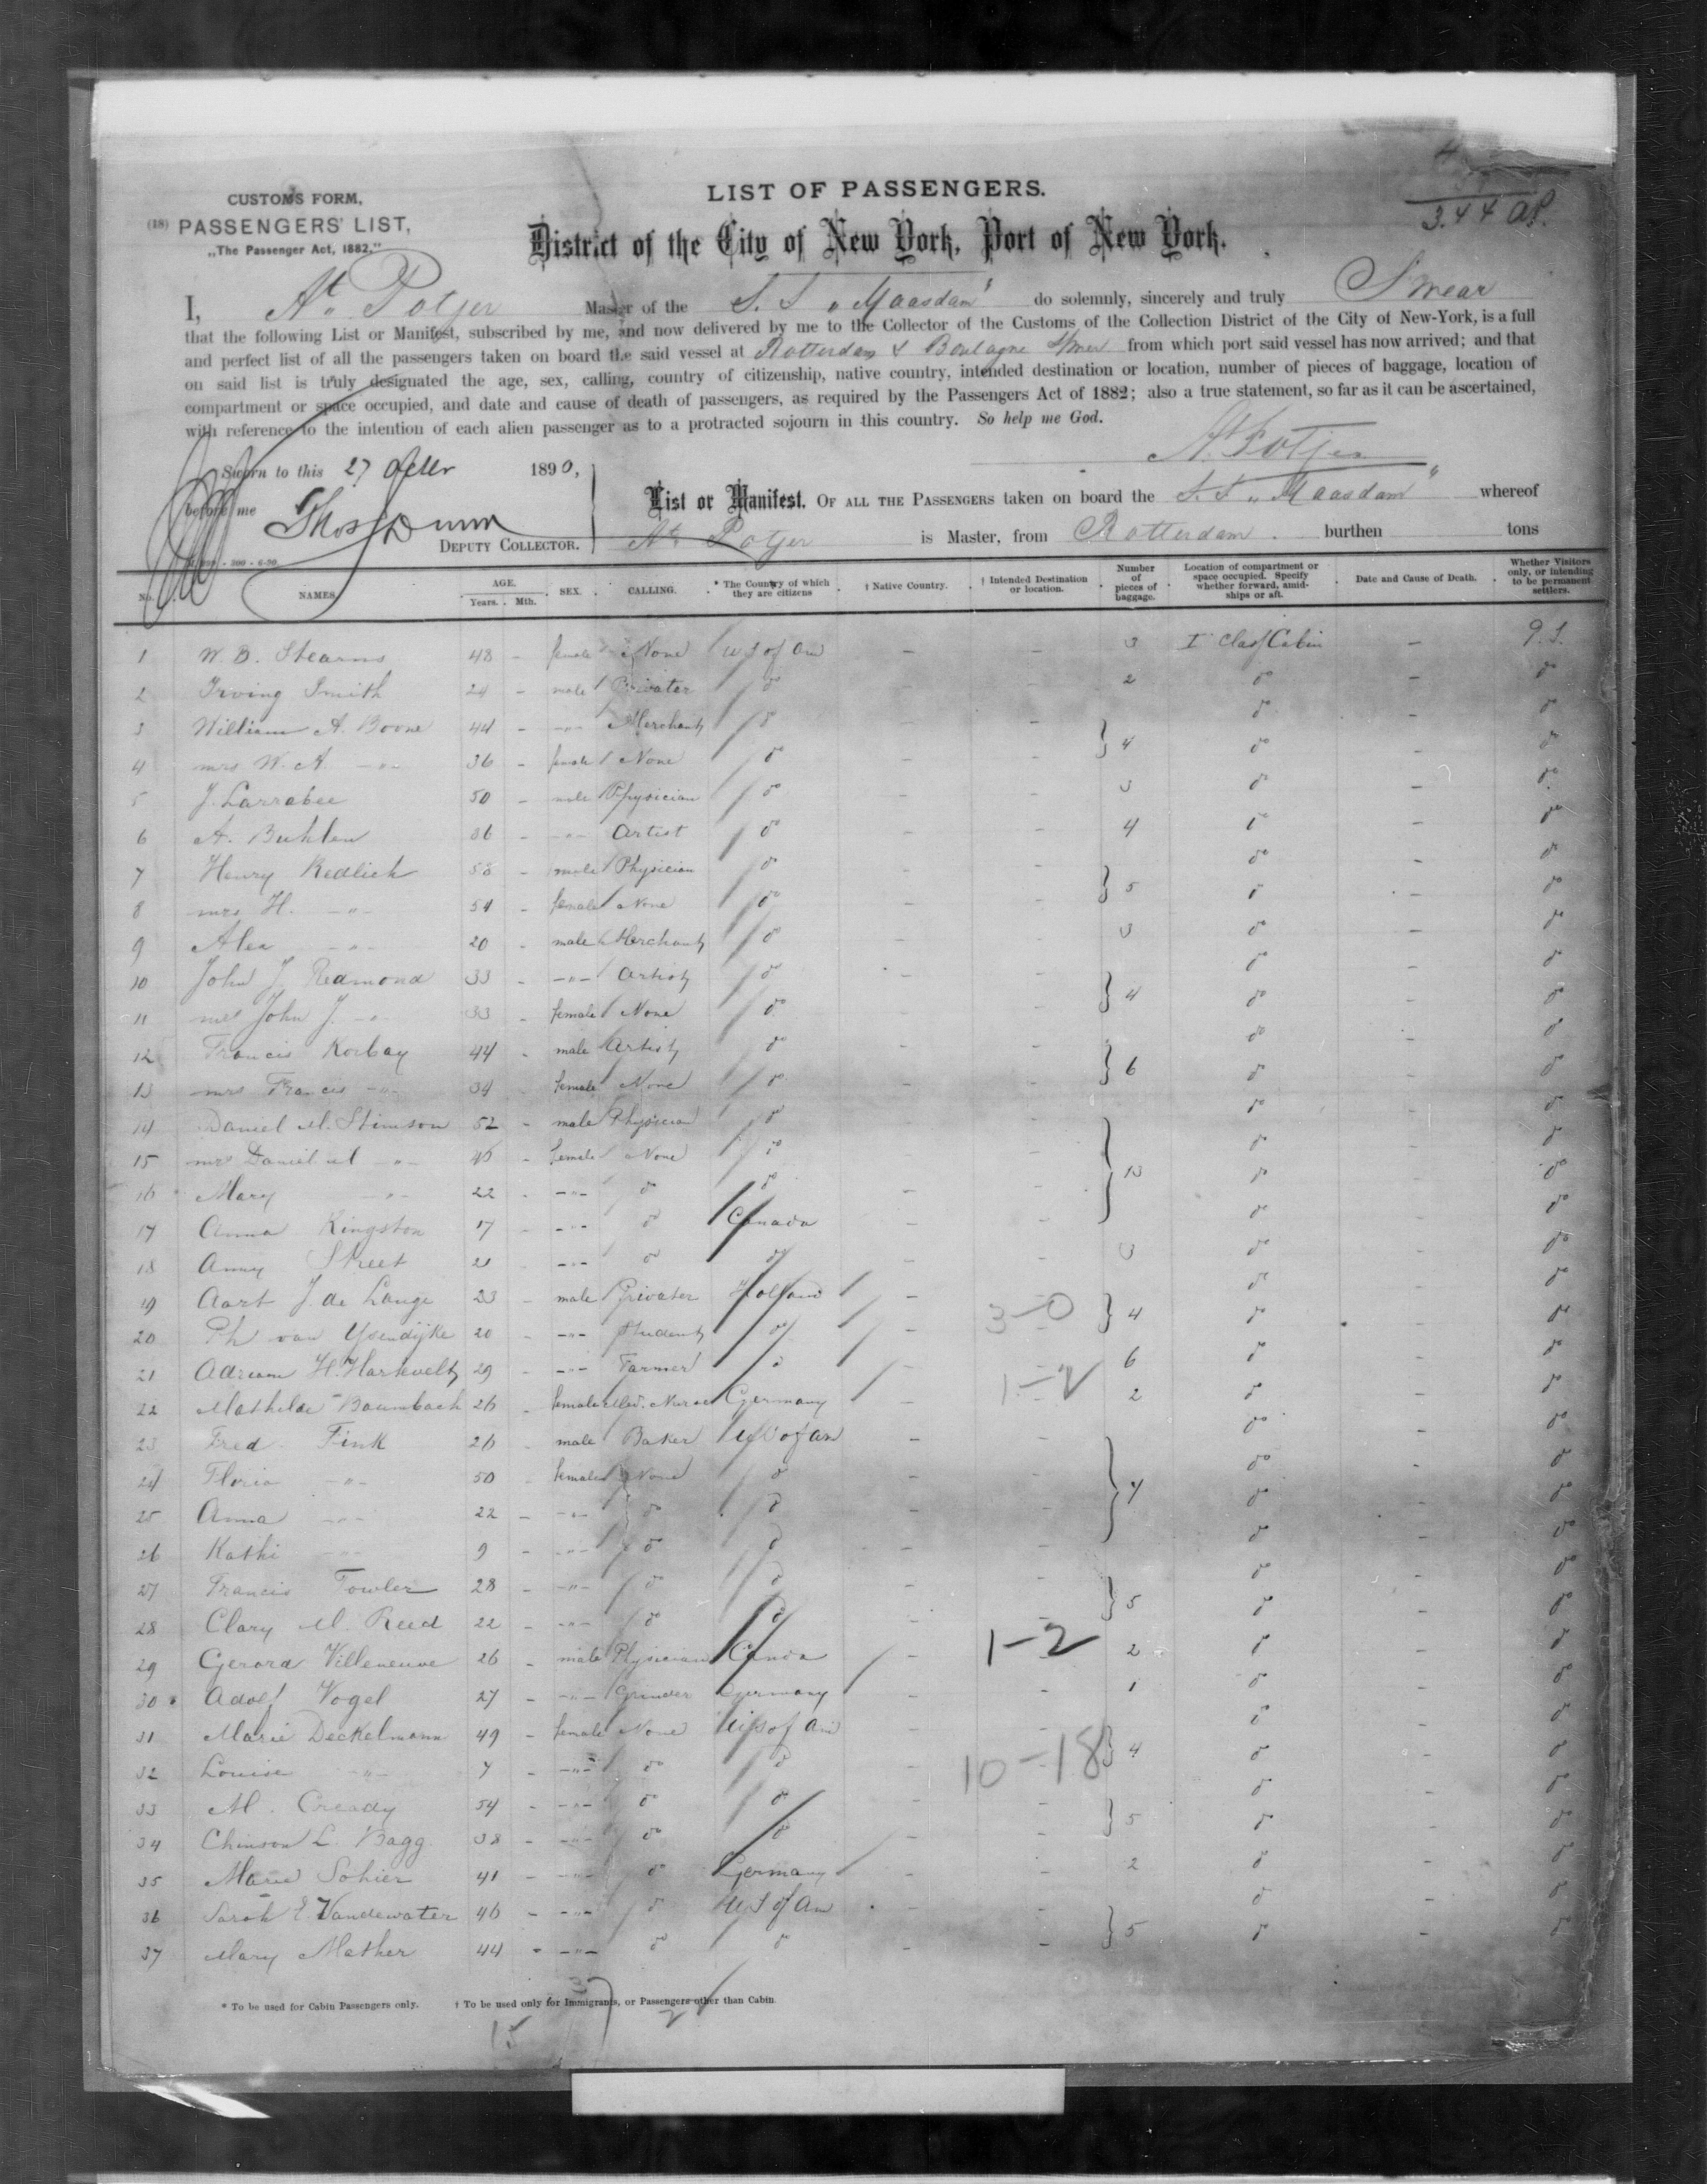 LIST OF PASSENGERS.
CUSTOMS FORM,
(18) PASSENGERS' LIST,
„The Passenger Act, 1882."
3.44 
District of the City of New York, Port of New York.
I, At. Potjer Master of the S. S. „Maasdam" do solemnly, sincerely and truly Swear
that the following List or Manifest, subscribed by me, and now delivered by me to the Collector of the Customs of the Collection District of the City of New-York, is a full
and perfect list of all the passengers taken on board the said vessel at Rotterdam & Boulogne s/mer from which port said vessel has now arrived; and that
on said list is truly designated the age, sex, calling, country of citizenship, native country, intended destination or location, number of pieces of baggage, location of
compartment or space occupied, and date and cause of death of passengers, as required by the Passengers Act of 1882; also a true statement, so far as it can be ascertained,
with reference to the intention of each alien passenger as to a protracted sojourn in this country. So help me God.
At Potjer
Sworn to this 27 1890,
before me
Thos Dunn
DEPUTY COLLECTOR.
List or Manifest. OF ALL THE PASSENGERS taken on board the S. S. „Maasdam" whereof
At Potjer is Master, from Rotterdam. burthen tons
No. NAMES. AGE. Years. Mth. SEX. CALLING. * The Country of which they are citizens † Native Country. † Intended Destination or location. Number of pieces of baggage. Location of compartment or space occupied. Specify whether forward, amidships or aft. Date and Cause of Death. Whether Visitors only, or intending to be permanent settlers.
1 W. B. Stearns 48 - female None U S of Am - - 3 I Class Cabin -
2 Irving Smith 24 - male Privater do - - 2 do - do
3 William A. Boone 44 - -„- Merchant do - - do - do
4 mrs W. A. -„- 36 - female None do - - } 4 do - do
5 J. Larrabee 50 - male Physician do - - 3 do - do
6 A. Buhlen 36 - -„- Artist do - - 4 do - do
7 Henry Redlich 58 - male Physician do - - do - do
8 mrs H. -„- 54 - female None do - - } 5 do - do
9 Alex -„- 20 - male Merchant do - - 3 do - do
10 John J. Redmond 33 - -„- Artist do - - do - do
11 mrs John J. -„- 33 - female None do - - } 4 do - do
12 Francis Korbay 44 - male Artist do - - do - do
13 mrs Francis -„- 34 - female None do - - } 6 do - do
14 Daniel M. Stimson 52 - male Physician do - - do - do
15 mrs Daniel M -„- 46 - female None do - - do - do
16 Mary -„- 22 - -„- do do - - } 13 do - do
17 Anna Kingston 17 - -„- do Canada - - do - do
18 Anny Street 21 - -„- do do - - 3 do - do
19 Aart J. de Lange 23 - male Privater Holland - do - do
20 Ph van Ysendijke 20 - -„- Student do - 3-0 } 4 do - do
21 Adriaan H. Hartevelt 29 - -„- Farmer do - 6 do - do
22 Mathilde Baumbach 26 - female Med. Nurse Germany - 1-2 2 do - do
23 Fred. Fink 26 - male Baker U S of Am - - do - do
24 Floria -„- 50 - female None do - - do - do
25 Anna -„- 22 - -„- do do - - } 4 do - do
26 Kathi -„- 9 - -„- do do - - do - do
27 Francis Fowler 28 - -„- do do - - do - do
28 Clary M. Reed 22 - -„- do do - - } 5 do - do
29 Gerard Villeneuve 26 - male Physician Canda - 1-2 2 do - do
30 Adolf Vogel 27 - -„- Grinder Germany - - 1 do - do
31 Marie Deckelmann 49 - female None U S of Am - - do - do
32 Louise -„- 7 - -„- do do - 10-18 } 4 do - do
33 M. Cready 54 - -„- do do - - do - do
34 Chinson L. Bagg. 38 - -„- do do - - } 5 do - do
35 Marie Sohier 41 - -„- do Germany - - 2 do - do
36 Sarah E. Vandewater 46 - -„- do U S of Am - - do - do
37 Mary Mather 44 - -„- do do - - } 5 do - do
* To be used for Cabin Passengers only. † To be used only for Immigrants, or Passengers other than Cabin.
15 2